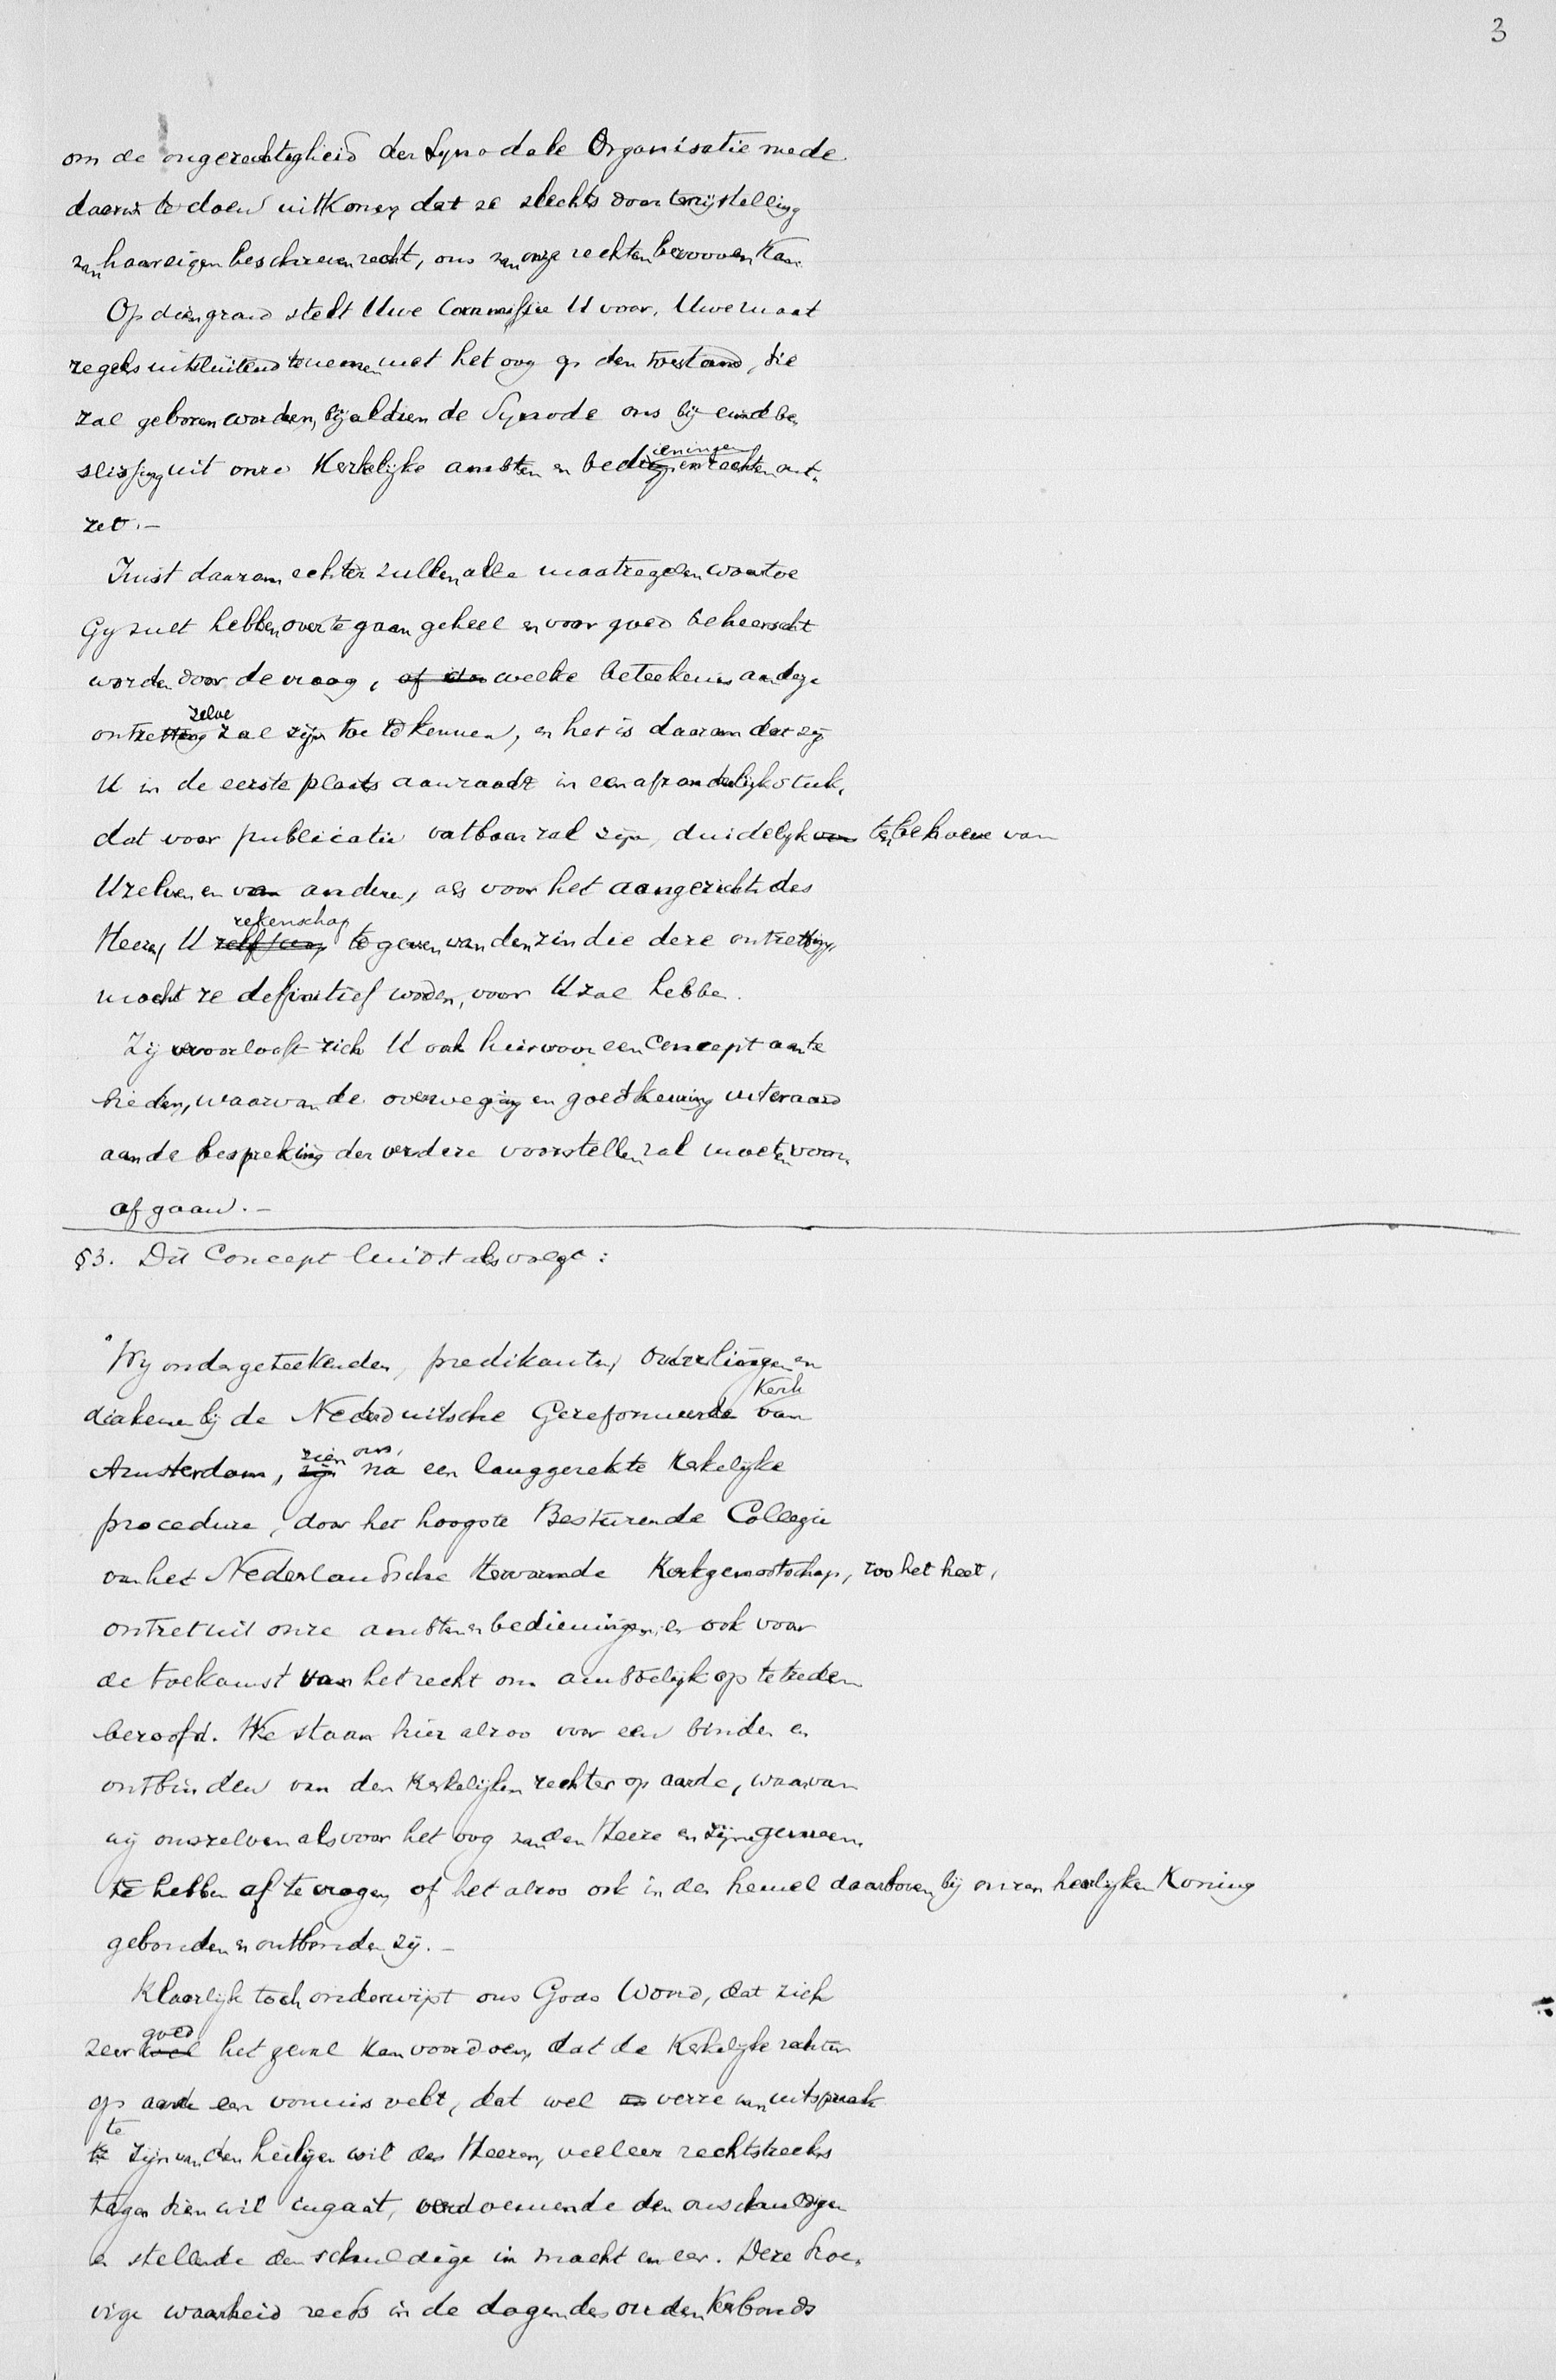 3
om de ongerechtigheid der Synodale Organisatie mede
daarin te doen uitkomen, dat ze slechts door terzijstelling
van haar eigen beschreven recht, ons van onze rechten berooven kan.
Op dien grond stelt Uwe Commissie U voor, Uwe maat
regels uitsluitend te nemen met het oog op den toestand, die
zal geboren worden, bijaldien de Synode ons bij eindbe-
slissing uit onze Kerkelijke ambten en bedieningen en rechten ont-
zet.—
Juist daarom echter zullen alle maatregelen waartoe
Gy zult hebben over te gaan geheel en voor goed beheerscht
worden door de vraag, welke beteekenis aan deze
ontzetting zelve zal zijn toe te kennen, en het is daarom dat zij
U in de eerste plaats aanraadt in een afzonderlijk stuk,
dat voor publicatie vatbaar zal zijn, duidelijk ten behoeve van
Uzelven en van andere, als voor het aangezicht des
Heeren, U rekenschap te geven van den zin die deze ontzetting,
mocht ze definitief worden, voor U zal hebben.
Zij veroorlooft zich U ook hiervoor een Concept aan te
bieden, waarvan de overweging en goedkeuring uiteraard
aan de bespreking der verdere voorstellen zal moeten voor-
afgaan.—
§3. Dit Concept luidt als volgt:
"Wy ondergeteekenden, predikanten, ouderlingen en
diakenen bij de Nederduitsche Gereformeerde Kerk van
Amsterdam, zien ons, na een langgerekte Kerkelijke
procedure, door het hoogste Besturende Collegie
van het Nederlandsche Hervormde Kerkgenootschap, zoo het heet,
ontzet uit onze ambten en bedieningen, en ook voor
de toekomst van het recht om ambtelijk op te treden
beroofd. We staan hier alzoo voor een binden en
ontbinden van den Kerkelijken rechter op aarde, waarvan
wij onszelven als voor het oog van den Heere en zijne gemeente
te hebben af te vragen, of het alzoo ook in den hemel daarboven bij onzen heerlijken Koning
gebonden en ontbonden zij.—
Klaarlijk toch onderwijst ons Gods Woord, dat zich
zeer goed het geval kan voordoen, dat de Kerkelijke rechter
op aarde een vonnis velt, dat wel verre van uitspraak
te zijn van den heiligen wil des Heeren, veeleer rechtstreeks
tegen dien wil ingaat, verdoemende den onschuldigen
en stellende den schuldige in macht en eer. Deze droe-
vige waarheid reeds in de dagen des ouden Verbonds